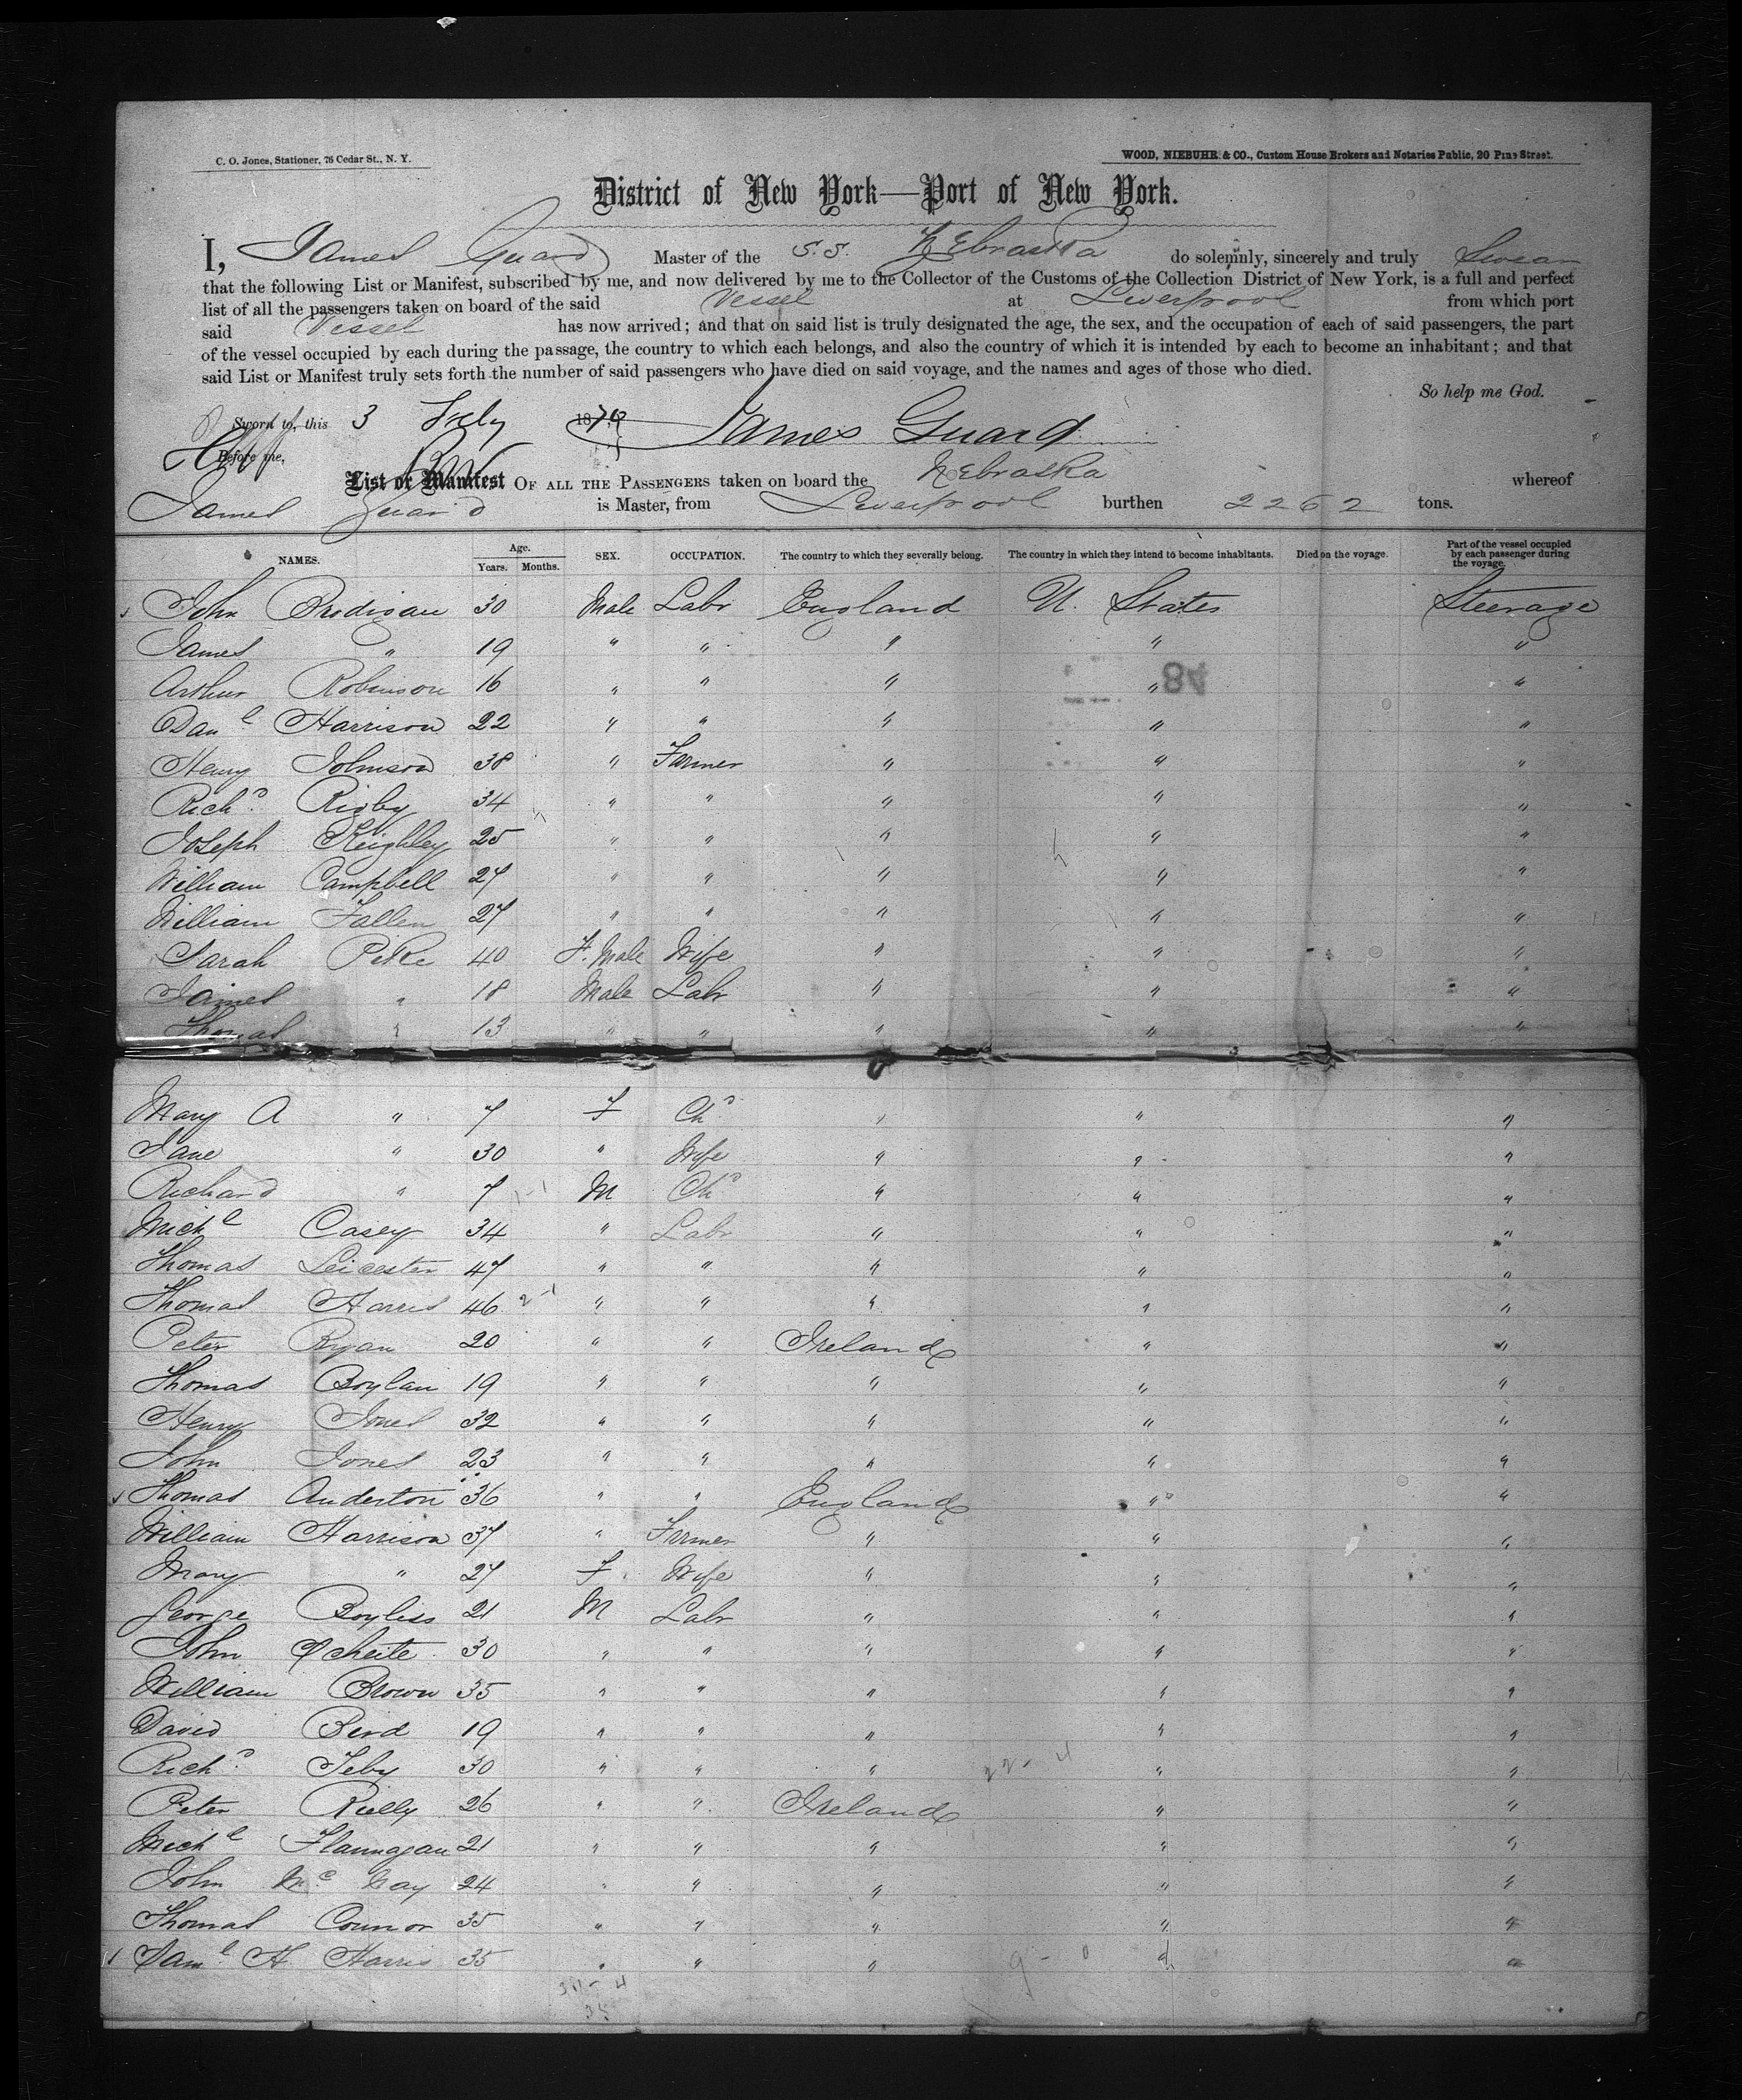 C. O. Jones, Stationer, 76 Cedar St., N. Y.
WOOD, NIEBUHR & CO., Custom House Brokers and Notaries Public, 20 Pine Street.
District of New York—Port of New York.
I, James Guard Master of the S.S. Nebraska do solemnly, sincerely and truly Swear
that the following List or Manifest, subscribed by me, and now delivered by me to the Collector of the Customs of the Collection District of New York, is a full and perfect
list of all the passengers taken on board of the said Vessel at Liverpool from which port
said Vessel has now arrived; and that on said list is truly designated the age, the sex, and the occupation of each of said passengers, the part
of the vessel occupied by each during the passage, the country to which each belongs, and also the country of which it is intended by each to become an inhabitant; and that
said List or Manifest truly sets forth the number of said passengers who have died on said voyage, and the names and ages of those who died.
So help me God.
Sworn to, this 3 July 18 James Guard
Before me,
List or Manifest OF ALL THE PASSENGERS taken on board the Nebraska whereof
James Guard is Master, from Liverpool burthen 2262 tons.
NAMES. Age. Years. Months. SEX. OCCUPATION. The country to which they severally belong. The country in which they intend to become inhabitants. Died on the voyage. Part of the vessel occupied by each passenger during the voyage.
John Brodigan 30 Male Labr England U. States Steerage
James " 19 " " " " "
84
Arthur Robinson 16 " " " " "
Danl Harrison 22 " " " " "
Henry Johnson 38 " Farmer " " "
Richd Rigby 34 " " " " "
Joseph Keighley 25 " " " " "
William Campbell 27 " " " " "
William Fallen 27 " " " " "
Sarah Pike 40 F. Male Wife " " "
James " 18 Male Labr " " "
Thomas " 13 " " " " "
Mary A " 7 F Chd " " "
Jane " 30 " Wife " " "
Richard " 7 M Chd " " "
Michl Casey 34 " Labr " " "
Thomas Leicester 47 " " " " "
Thomas Harris 46 " " " " "
Peter Ryan 20 " " Ireland " "
Thomas Boylan 19 " " " " "
Henry Jones 32 " " " " "
John Jones 23 " " " " "
Thomas Anderton 36 " " England " "
William Harrison 37 " Farmer " " "
Mary " 27 F Wife " " "
George Boyliss 21 M Labr " " "
John 30 " " " " "
William Brown 35 " " " " "
David Bird 19 " " " " "
Richd 30 " " " " "
Peter Rielly 26 " " Ireland " "
Michl Flannagan 21 " " " " "
John Mc Nay 24 " " " " "
Thomas Connor 35 " " " " "
Saml H Harris 35 " " " " "